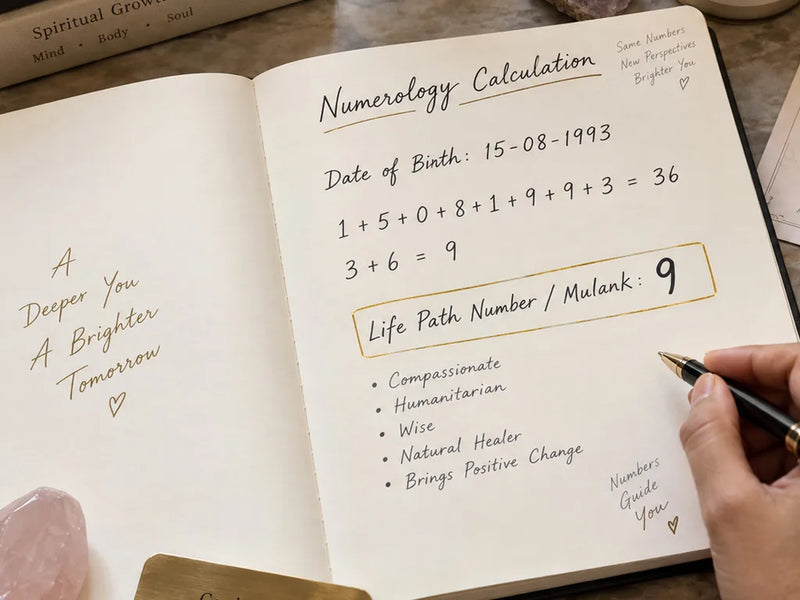 Spiritual Growth
Mind • Body • Soul
A
Deeper You
A Brighter
Tomorrow
Same Numbers
New Perspectives
Brighter You
Numerology Calculation
Date of Birth: 15-08-1993
1 + 5 + 0 + 8 + 1 + 9 + 9 + 3 = 36
3 + 6 = 9
Life Path Number / Mulank: 9
• Compassionate
• Humanitarian
• Wise
• Natural Healer
• Brings Positive Change
Numbers
Guide
You